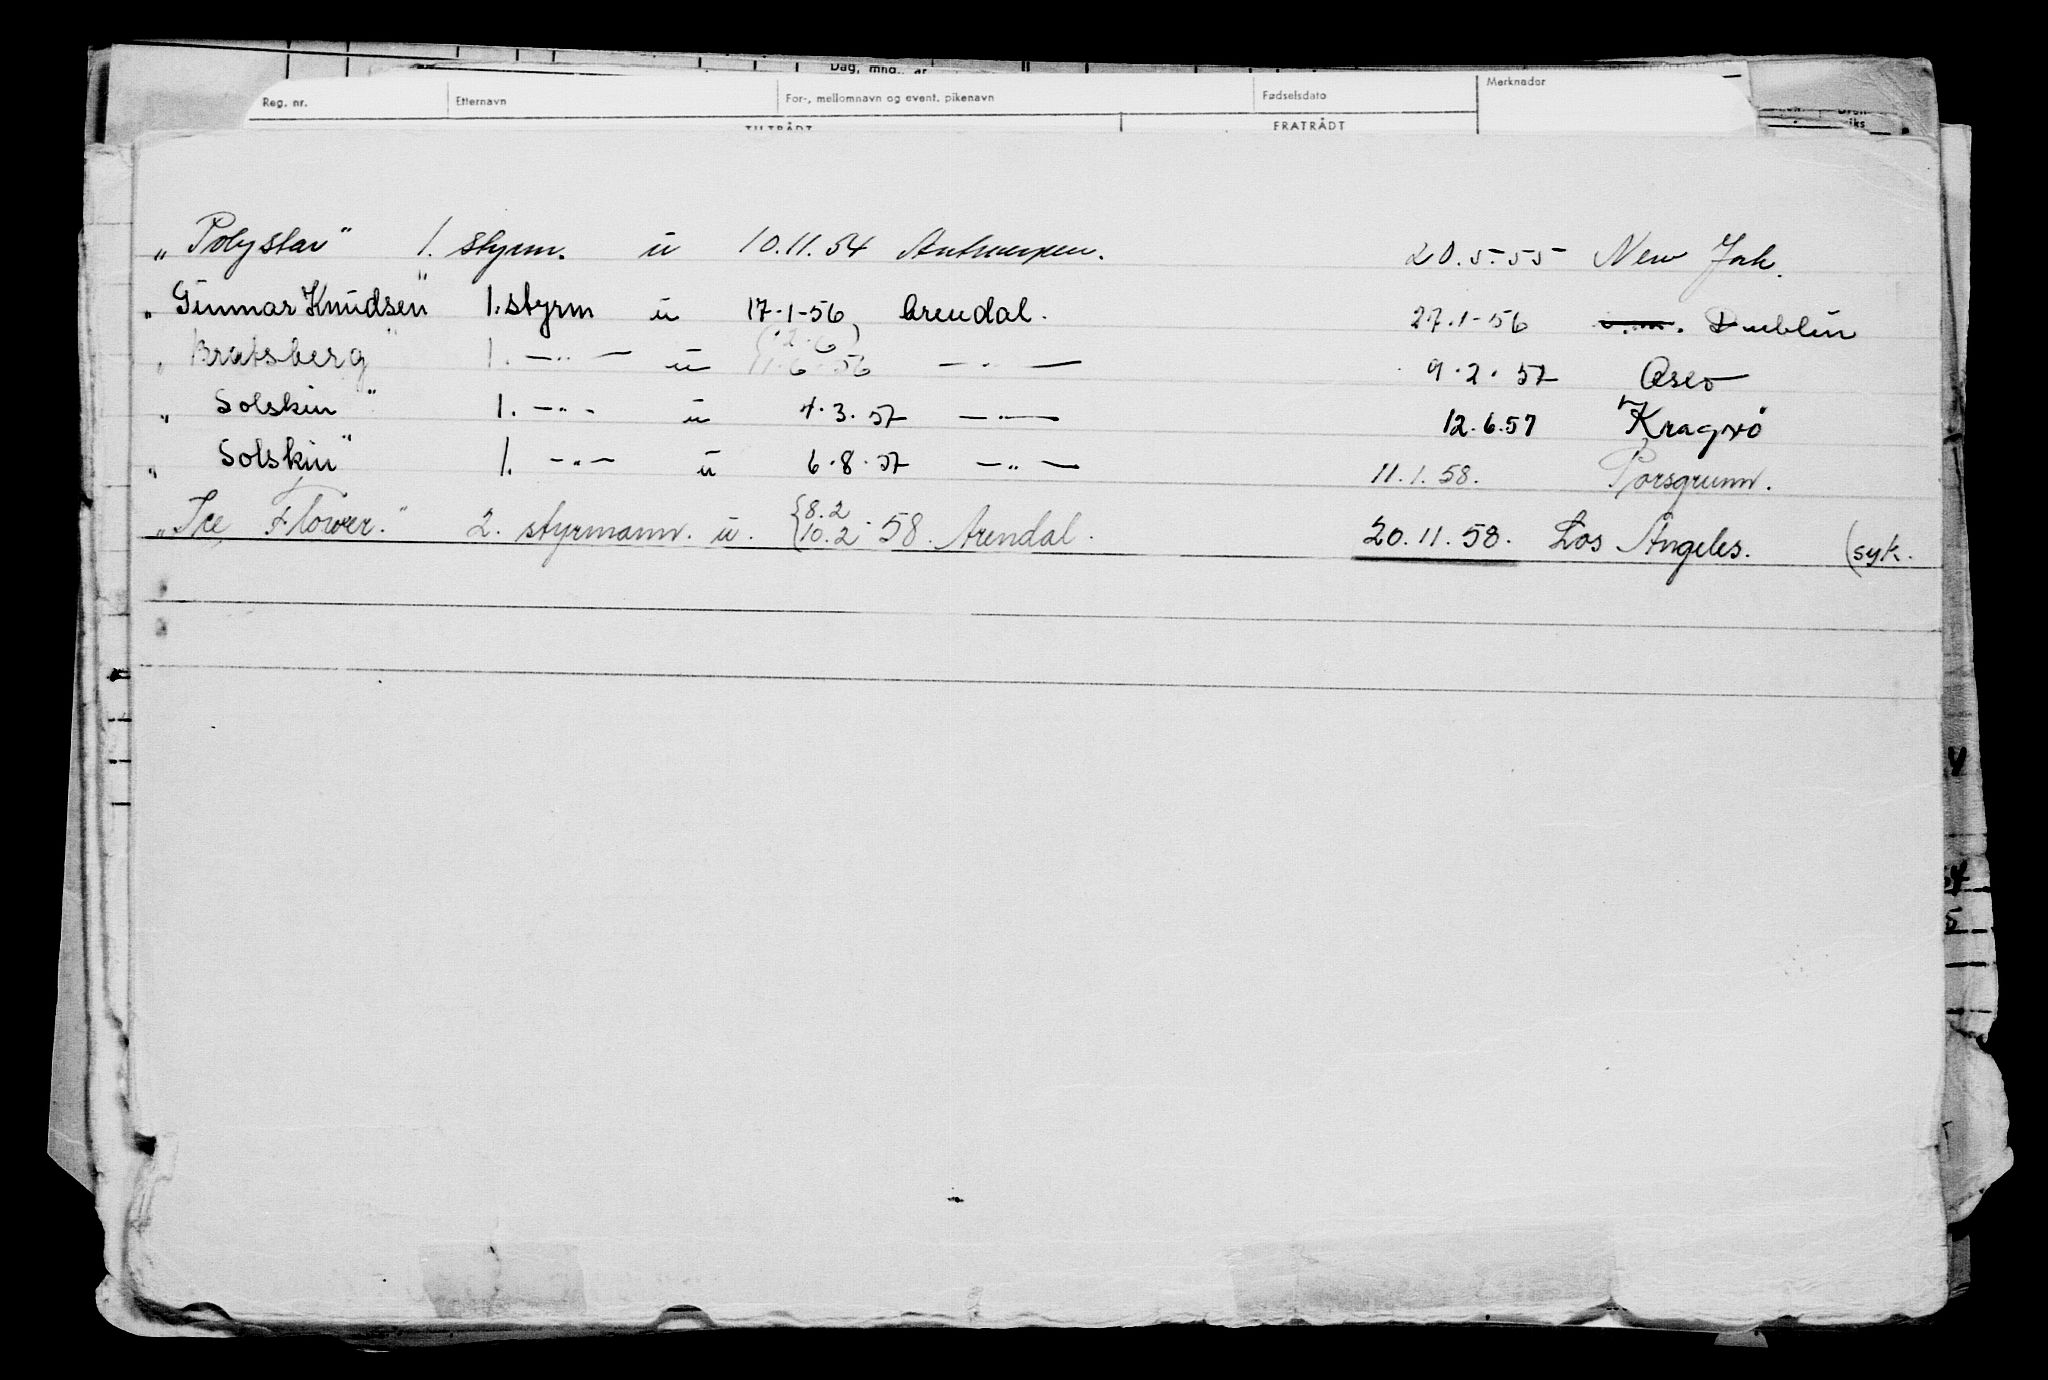 Dag, mnd., år
Reg. nr. Etternavn For-, mellomnavn og event. pikenavn Fødselsdato Merknader
TILTRÅDT FRATRÅDT
„Polystar" 1. styrm. u 10.11.54 Antwerpen. 20.5.55 New York.
„Gunnar Knudsen" 1. styrm u 17-1-56 Arendal. 27.1-56 Dublin
„Bratsberg" 1. —"— u 11.6.56 —"— 9.2.57 Oslo
„Solskin" 1. —"— u 4.3.57 —"— 12.6.57 Kragrö
„Solskin" 1. —"— u 6.8.57 —"— 11.1.58. Porsgrunn.
„Ice Flower." 2. styrmann. u. {8.2 10.2.58. Arendal. 20.11.58. Los Angeles. (syk.